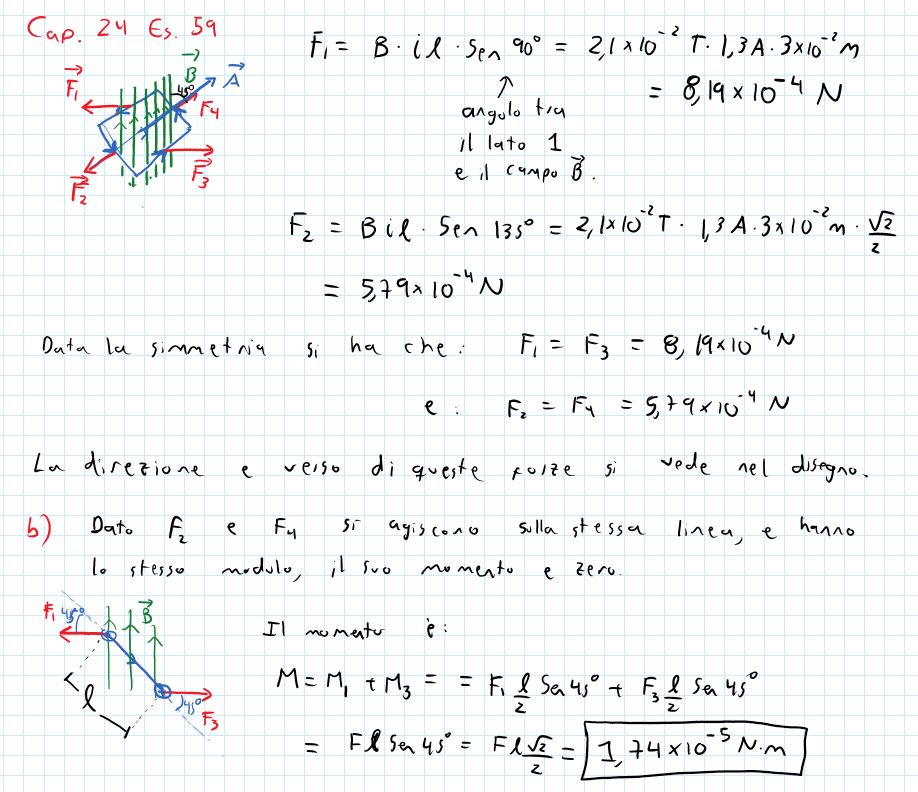 Cap. 24 Es. 59
B A
45°
F₁ F₄
F₂ F₃
F₁ = B · i l · Sen 90° = 2,1 × 10⁻² T · 1,3 A · 3×10⁻² m
= 8,19 × 10⁻⁴ N
↑
angolo tra
il lato 1
e il campo B⃗.
F₂ = B i l · Sen 135° = 2,1×10⁻² T · 1,3 A · 3×10⁻² m · √2/2
= 5,79 × 10⁻⁴ N
Data la simmetria si ha che: F₁ = F₃ = 8,19×10⁻⁴ N
e: F₂ = F₄ = 5,79×10⁻⁴ N
La direzione e verso di queste forze si vede nel disegno.
b) Dato F₂ e F₄ si agiscono sulla stessa linea, e hanno
lo stesso modulo, il suo momento e zero.
F₁ 45° B⃗
l 45°
F₃
Il momento è:
M = M₁ + M₃ = = F₁ l/2 Sen 45° + F₃ l/2 Sen 45°
= F l Sen 45° = F l √2/2 = 1,74×10⁻⁵ N·m